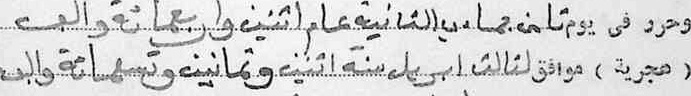 وحرر في يوم ثامن جمادى الثانية عام اثنين واربعمائة والف
( هجرية ) موافق لثالث ابريل سنة اثنين وثمانين وتسعمائة والف